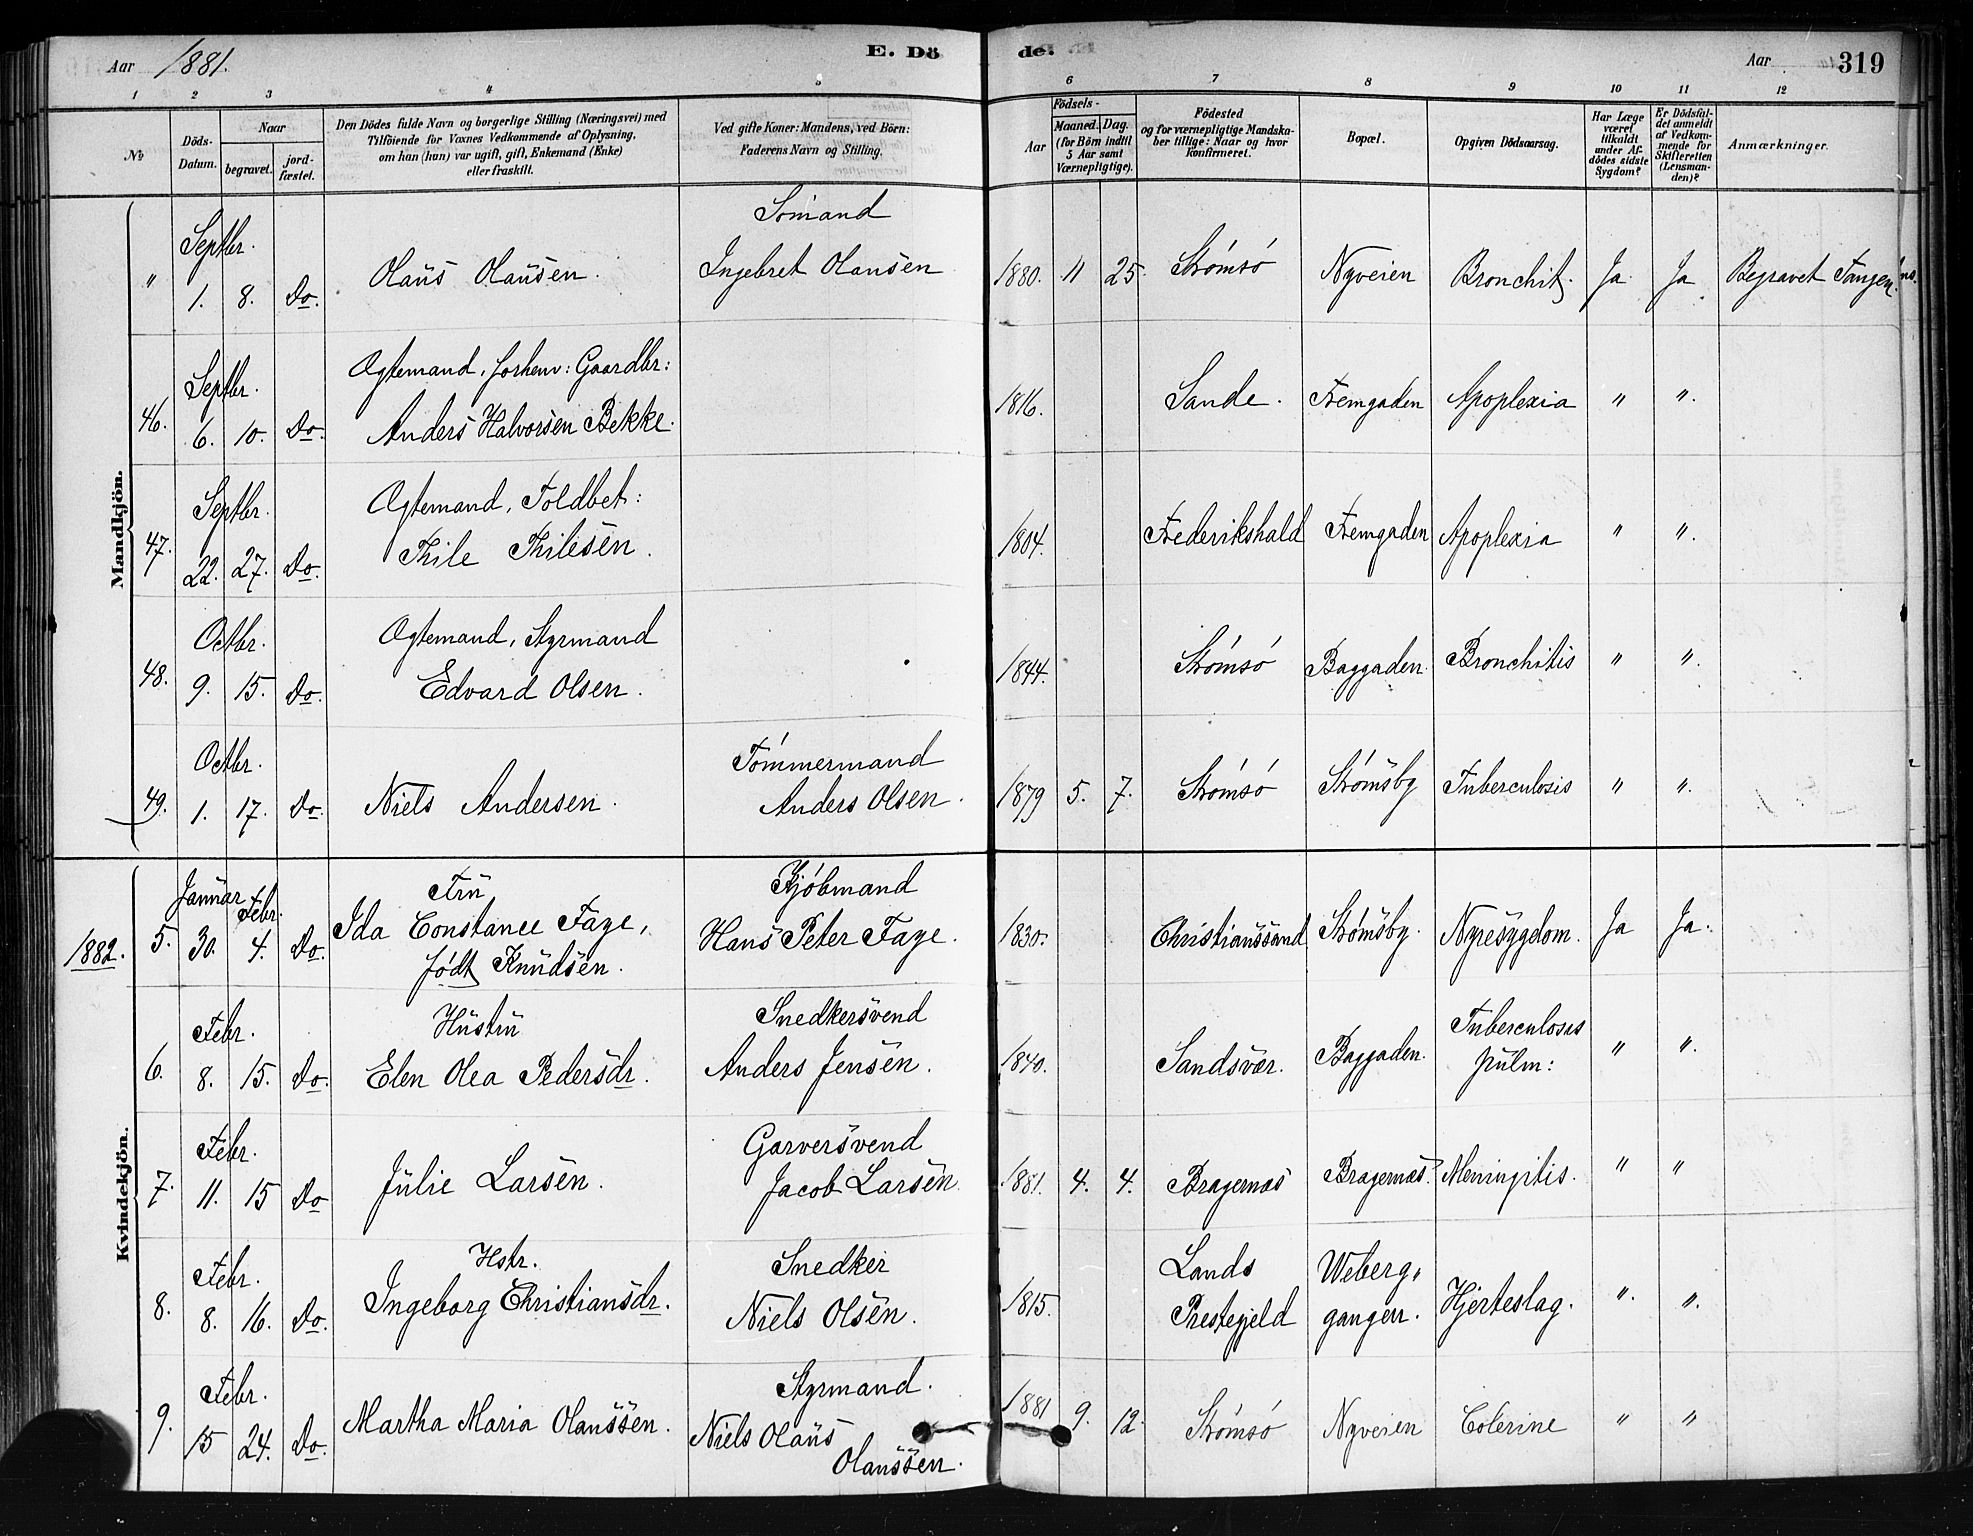 Aar 1881. E. Dö de. Aar 319
1 2 3 4 5 6 7 8 9 10 11 12
№
Döds-Datum.
Naar
begravet.
jord-fæstet.
Den Dödes fulde Navn og borgerlige Stilling (Næringsvei) med
Tilföiende for Voxnes Vedkommende af Oplysning,
om han (hun) var ugift, gift, Enkemand (Enke)
eller fraskilt.
Ved gifte Koner: Mandens, ved Börn:
Faderens Navn og Stilling.
Aar
Födsels-
Maaned. Dag.
(for Börn indtil
5 Aar samt
Værnepligtige).
Födested
og for værnepligtige Mandska-
ber tillige: Naar og hvor
konfirmeret.
Bopæl.
Opgiven Dödsaarsag.
Har Læge
været
tilkaldt
under Af-
dödes sidste
Sygdom?
Er Dödsfal-
det anmeldt
af Vedkom-
mende for
Skifteretten
(Lensman-
den)?
Anmærkninger.
Mandkjön.
Septbr. Sømand
" 1. 8. Do. Olaus Olausen. Ingebret Olausen 1880. 11 25. Strømsø Nyveien Bronchit. Ja Ja Begravet Tangen
Septbr. Ægtemand, forhenv: Gaardbr:
46. 6. 10. Do. Anders Halvorsen Bekke. 1816. Sande. Fremgaden Apoplexia " "
Septbr. Ægtemand, Toldbet:
47. 22. 27. Do. Thile Thilesen. 1804. Frederikshald Fremgaden Apoplexia " "
Octbr. Ægtemand, Styrmand
48. 9. 15. Do. Edvard Olsen. 1844. Strømsø Baggaden Bronchitis " "
Octbr. Tømmermand
49. 1. 17. Do. Niels Andersen. Anders Olsen. 1879 5. 7. Strømsø Strømsby Tuberculosis " "
Kvindekjön.
1882.
Januar Febr. Fru Kjøbmand
5. 30. 4. Do. Ida Constance Faye, Hans Peter Faye. 1830. Christianssand Strømsby. Nyresygdom. Ja Ja.
født Knudsen.
Febr. Hustru Snedkersvend Tuberculosis
6. 8. 15. Do. Elen Olea Pedersdr. Anders Jensen. 1840. Sandsvær. Baggaden. pulm: " "
Febr. Garversvend
7. 11. 15 Do Julie Larsen. Jacob Larsen 1881. 4. 4. Bragernæs Bragernæs. Meningitis. " "
Febr. Hstr. Snedker Lands Weberg,
8. 8. 16. Do. Ingeborg Christiansdr. Niels Olsen. 1815. Prestegjeld gangen. Hjerteslag. " "
Febr. Styrmand.
9. 15 24. Do. Martha Maria Olaussen. Niels Olaus 1881 9. 12. Strømsø Nyveien Colerine " "
Olaussen.